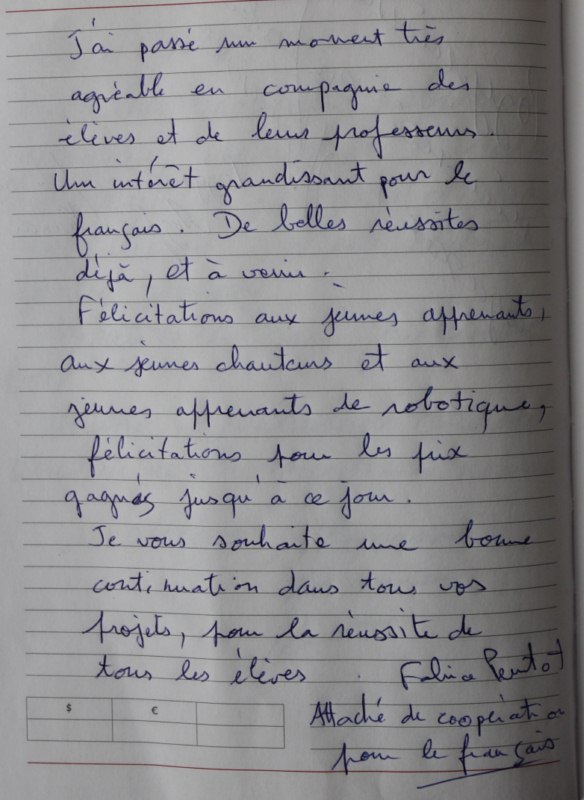 J'ai passé un moment très
agréable en compagnie des
élèves et de leurs professeurs.
Un intérêt grandissant pour le
français. De belles réussites
déjà, et à venir.
Félicitations aux jeunes apprenants,
aux jeunes chanteurs et aux
jeunes apprenants de robotique,
félicitations pour les prix
gagnés jusqu'à ce jour.
Je vous souhaite une bonne
continuation dans tous vos
projets, pour la réussite de
tous les élèves. Fabrice
$ €
Attaché de coopération
pour le français